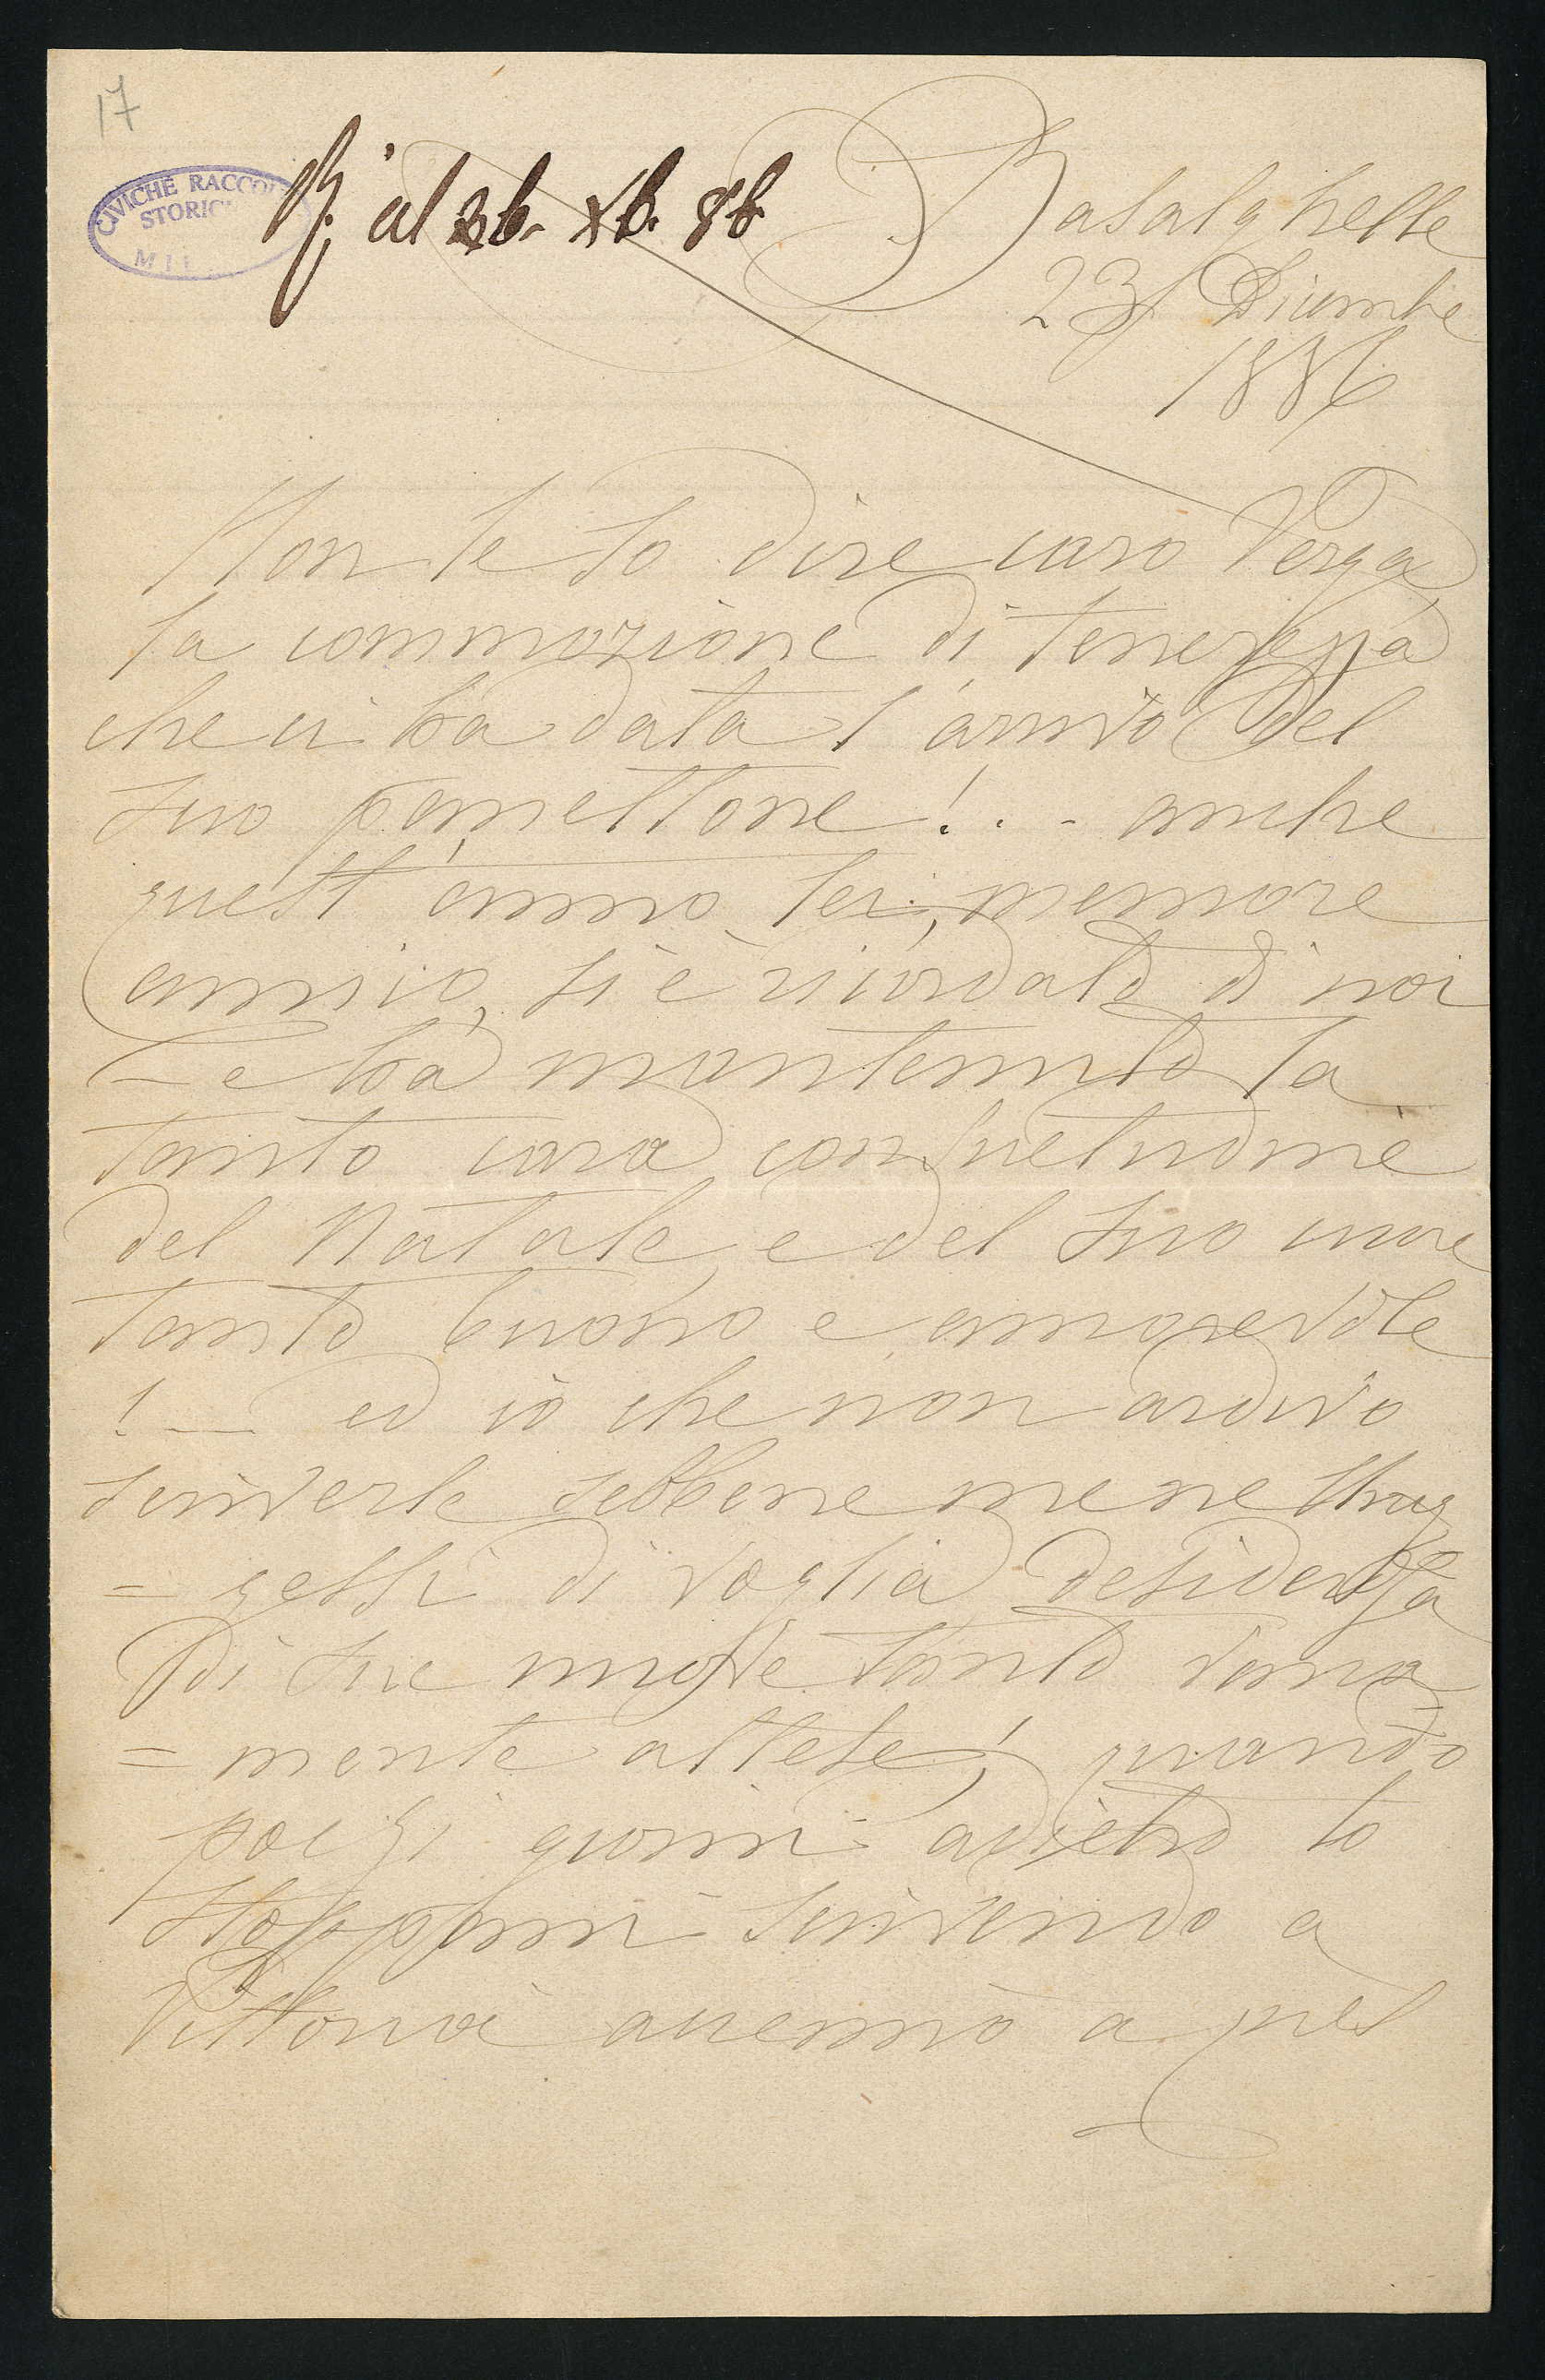 17
CIVICHE RACCOL
STORIC
MIL
R. il 26. Xb. 86
Basalghelle
23 Dicembre
1886
Non le so dire caro Verga
la commozione di tenerezza
che ci ha data l'arrivo del
suo panettone!.. - anche
quest'anno, lei, memore
amico, si è ricordato di noi
- e ha mantenuto la
tanto cara consuetudine
del Natale, e del suo cuore
tanto buono e amorevole
! — ed io che non ardivo
scriverle sebbene me ne strug
= gessi di voglia desiderosa
di sue nuove tanto vana
= mente attese! quando
pochi giorni addietro lo
Stoppani scrivendo a
Vittoria accennò a quel